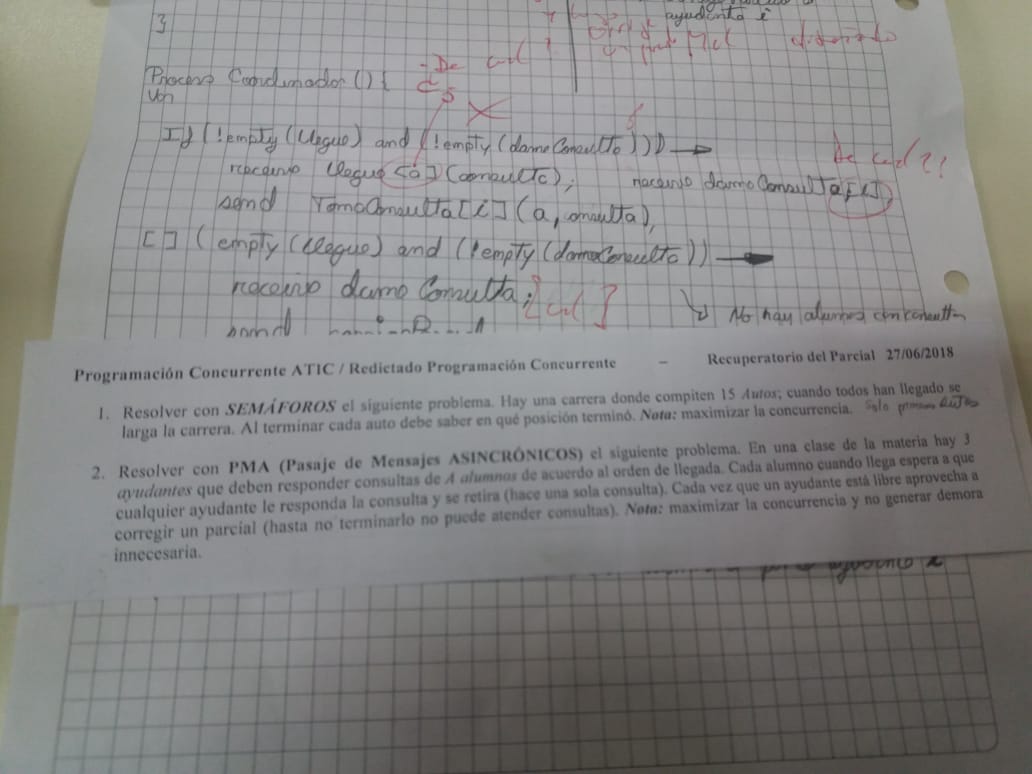 }
ayudante i
Proceso Coordinador () {
- De cual ?
Var
If (!empty(llegue) and (!empty(dameConsulta))) →
De cual ??
receive llegue [a] (consulta); receive dameConsulta[i]
send TomaConsulta [i] (a, consulta),
[] (empty(llegue) and (!empty(dameConsulta)) →
receive dameConsulta; [cual]
No hay alumnos con consultas
send
Programación Concurrente ATIC / Redictado Programación Concurrente – Recuperatorio del Parcial 27/06/2018
1. Resolver con SEMÁFOROS el siguiente problema. Hay una carrera donde compiten 15 Autos; cuando todos han llegado se
larga la carrera. Al terminar cada auto debe saber en qué posición terminó. Nota: maximizar la concurrencia. Solo autos
2. Resolver con PMA (Pasaje de Mensajes ASINCRÓNICOS) el siguiente problema. En una clase de la materia hay 3
ayudantes que deben responder consultas de A alumnos de acuerdo al orden de llegada. Cada alumno cuando llega espera a que
cualquier ayudante le responda la consulta y se retira (hace una sola consulta). Cada vez que un ayudante está libre aprovecha a
corregir un parcial (hasta no terminarlo no puede atender consultas). Nota: maximizar la concurrencia y no generar demora
innecesaria.